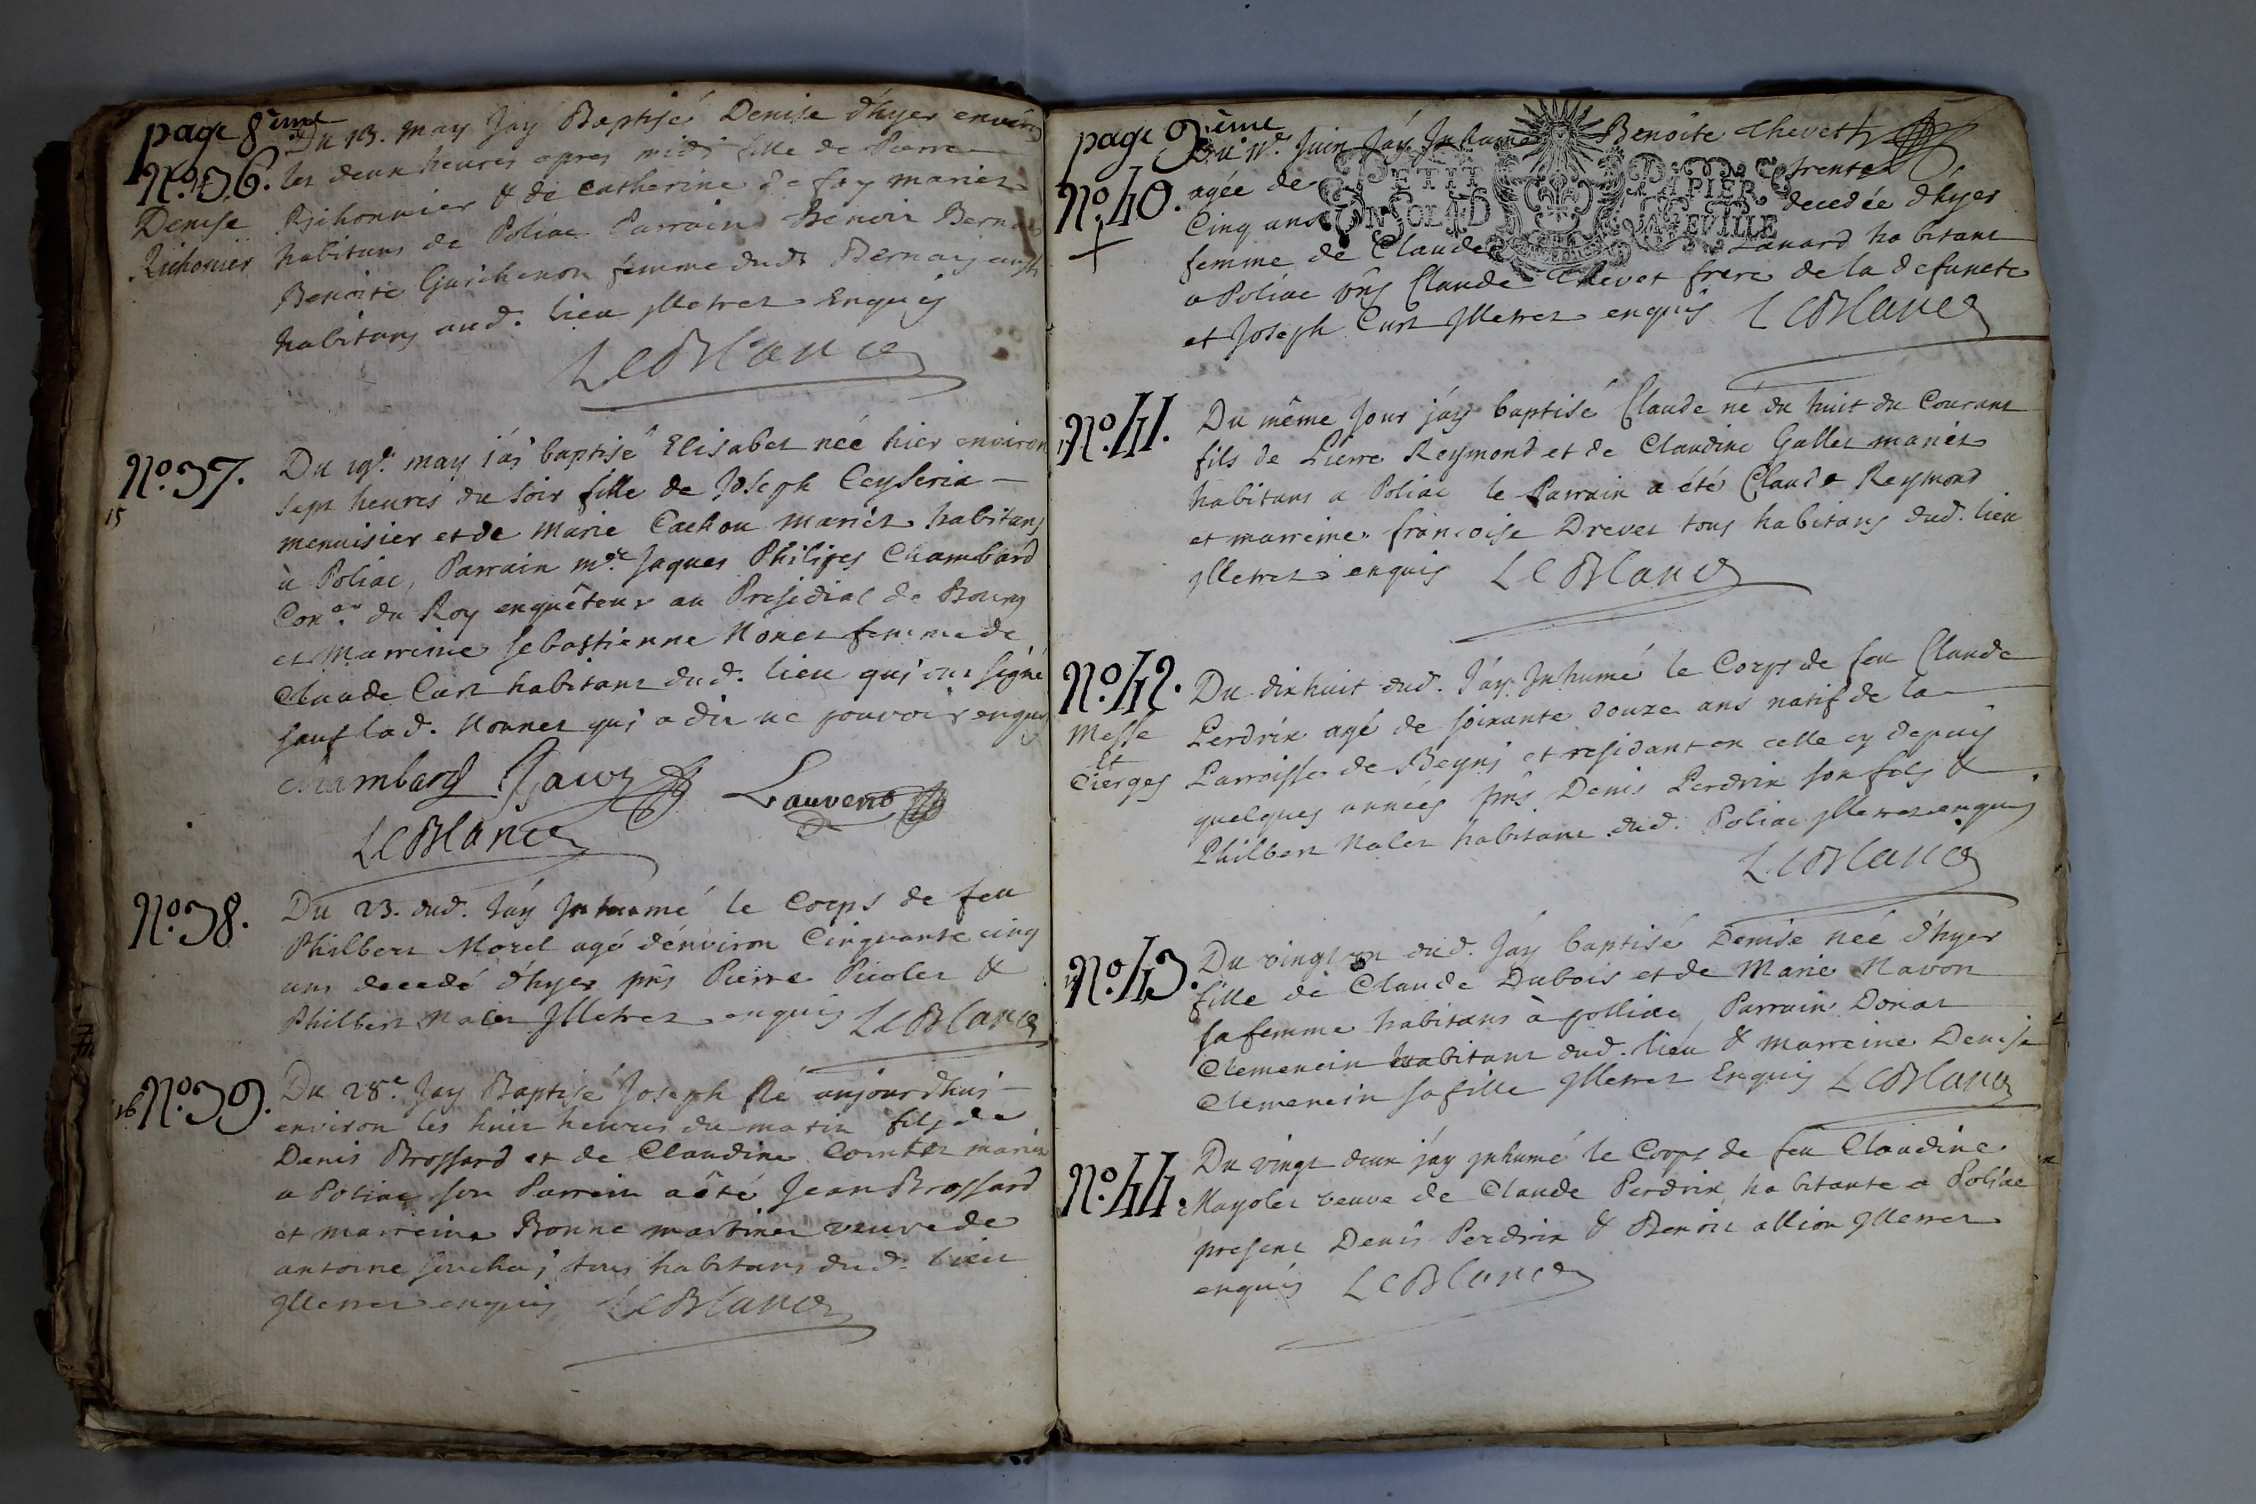 page 8ème
Du 13. may Jay Baptisé Denise d'hyer environ
No. 36. les deux heures apres midi fille de Pierre
Denise Richonnier & de Catherine de foy mariez
Richonier habitans de Poliac Parrain Benoit Bernay
Benoite Guichenon femme dudt Bernay aussi
habitans aud. lieu illetrez Enquis
LeBlanc
No. 37. Du 19e. may j'ay baptisé Elisabet née hier environ
15 sept heures du soir fille de Joseph Ceyseria
menuisier et de Marie Cachou mariez habitans
à Poliac, Parrain mr. Jaques Philipes Chambard
Coner. du Roy enquêteur au Presidial de Bourg
et Marreine Sebastienne Nonet femme de
Claude Curt habitant dud. lieu qui ont signé
sauf lad. Nonnet qui a dit ne pouvoir enquis
Chambard
Lauvent
LeBlanc
No. 38. Du 23. dud. J'ay Inhumé le Corps de feu
Philbert Morel agé d'environ Cinquante cinq
ans decedé d'hyer pñs Pierre Picolet &
Philbert Nalet Illetrez enquis LeBlanc
16 No. 39. Du 28e. Jay Baptisé Joseph Né aujourdhui
environ les huit heures du matin fils de
Denis Brossard et de Claudine Comtet mariez
a Poliac son Parrein a été Jean Brossard
et marreine Bonne martinet veuve de
antoine tous habitans dud. lieu
Illetrez enquis LeBlanc
page 9ième
Du 11e. Juin J'ay Inhumé Benoîte Chevet
No. 40. agée de trente
PETIT PAPIER
Cinq ans decedée d'hyer
UN SOL 4 D LA FEVILLE
femme de Claude Lanard habitant
a Poliac pñs Claude Chevet frere de la defuncte
et Joseph Curt Illetrez enquis LeBlanc
No. 41. Du même Jour j'ay baptisé Claude né du huit du Courant
fils de Pierre Reymond et de Claudine Gallet mariez
habitans a Poliac le Parrain a été Claude Reymond
et marreine francoise Drevet tous habitans dud. lieu
Illetrez enquis LeBlanc
No. 42. Du dixhuit dud. J'ay Inhumé le Corps de feu Claude
Messe Perdrix agé de soixante douze ans natif de la
et
Cierges Parroisse de Beyni et residant en celle cy depuis
quelques années pñs Denis Perdrix son fils &
Philbert Nalet habitant dud. Poliac Illetrez enquis
LeBlanc
No. 43. Du vingt un dud. J'ay baptisé Denise née d'hyer
fille de Claude Dubois et de Marie Navon
sa femme habitans à polliac, Parrain Donat
Clemencin habitant dud. lieu & marreine Denise
Clemencin sa fille Illetrez Enquis LeBlanc
No. 44. Du vingt deux j'ay inhumé le Corps de feu Claudine
Mayolet veuve de Claude Perdrix habitante a Poliac
present Denis Perdrix & Benoit allion Illetrez
enquis LeBlanc